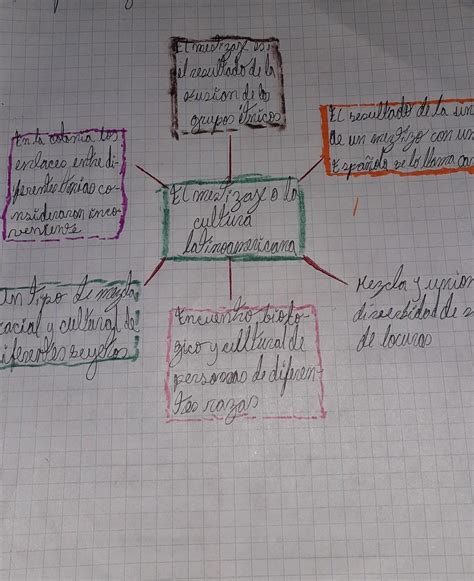 El mestizaje es
el resultado de la
fusion de los
grupos étnicos
El resultado de la un
de un mestizo con un
Español se lo llama ca
En la colonia los
enlaces entre di-
ferentes etnias co-
nsideraron inco-
veniente
El mestizaje o la
cultura
latinoamericana
un tipo de mezcla
racial y cultural de
diferentes
Encuentro bioló-
gico y cultural de
personas de diferen-
tes razas
Mezcla y union
diversidad de
de